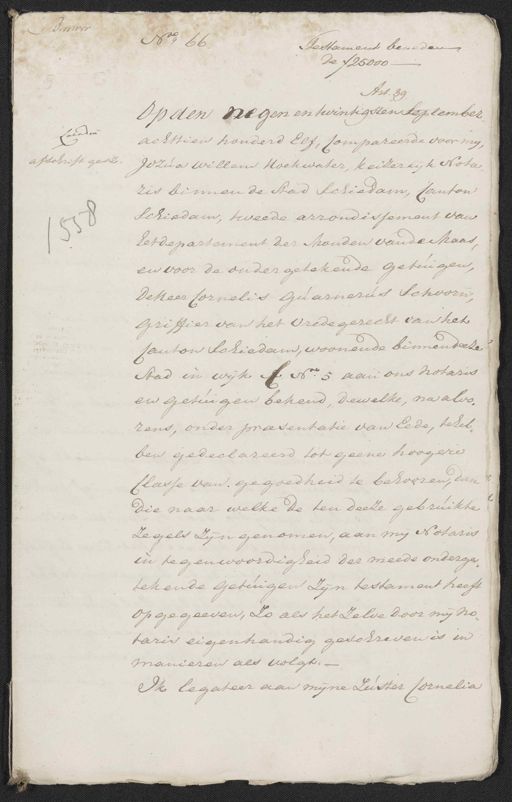 N.ro 66
Testament beneden
de f25000 —
Art. 39
Op den negen en twintigsten September
achttien honderd Elf, Compareerde voor mij
Jozua Willem Hoekwater, keizerlijk Nota-
ris binnen de Stad Schiedam, Canton
Schiedam, tweede arrondissement van
het departement der Monden van de Maas,
en voor de ondergetekende getuigen,
De Heer Cornelis Guarnerus Schoorn,
Griffier van het Vredegerecht van het
Canton Schiedam, woonende binnen deeze
Stad in wijk C N.ro 5 aan ons Notaris
en getuigen bekend, dewelke, na alvo-
rens, onder praesentatie van Eede, te heb-
ben gedeclareerd tot geene hoogere
Classe van gegoedheid te behooren, dan
die naar welke de ten deeze gebruikte
Zegels Zijn genomen, aan mij Notaris
in tegenwoordigheid der meede onderge-
tekende getuigen Zijn testament heeft
opgegeeven, Zo als het Zelve door mij No-
taris eigenhandig geschreven is in
manieren als volgt. —
Ik legateer aan mijne Zuster Cornelia
afschrift gesz.
1558